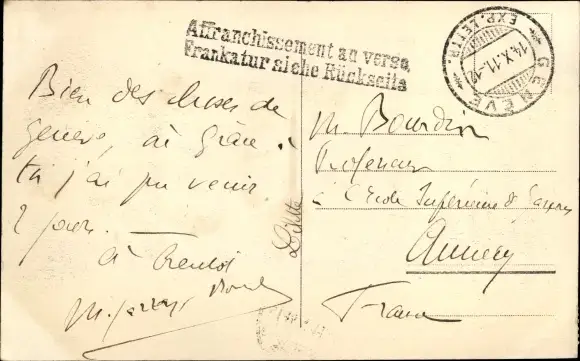 Affranchissement au verso.
Frankatur siehe Rückseite
GENÈVE
EXP. LETTR.
14.X.11.-12
Bien des choses de
Genève, où grâce à
toi j'ai pu venir
2 jours. —
à bientôt
M.
M. Bourdin
Professeur
à l'Ecole Supérieure de Garçons
Annecy
France